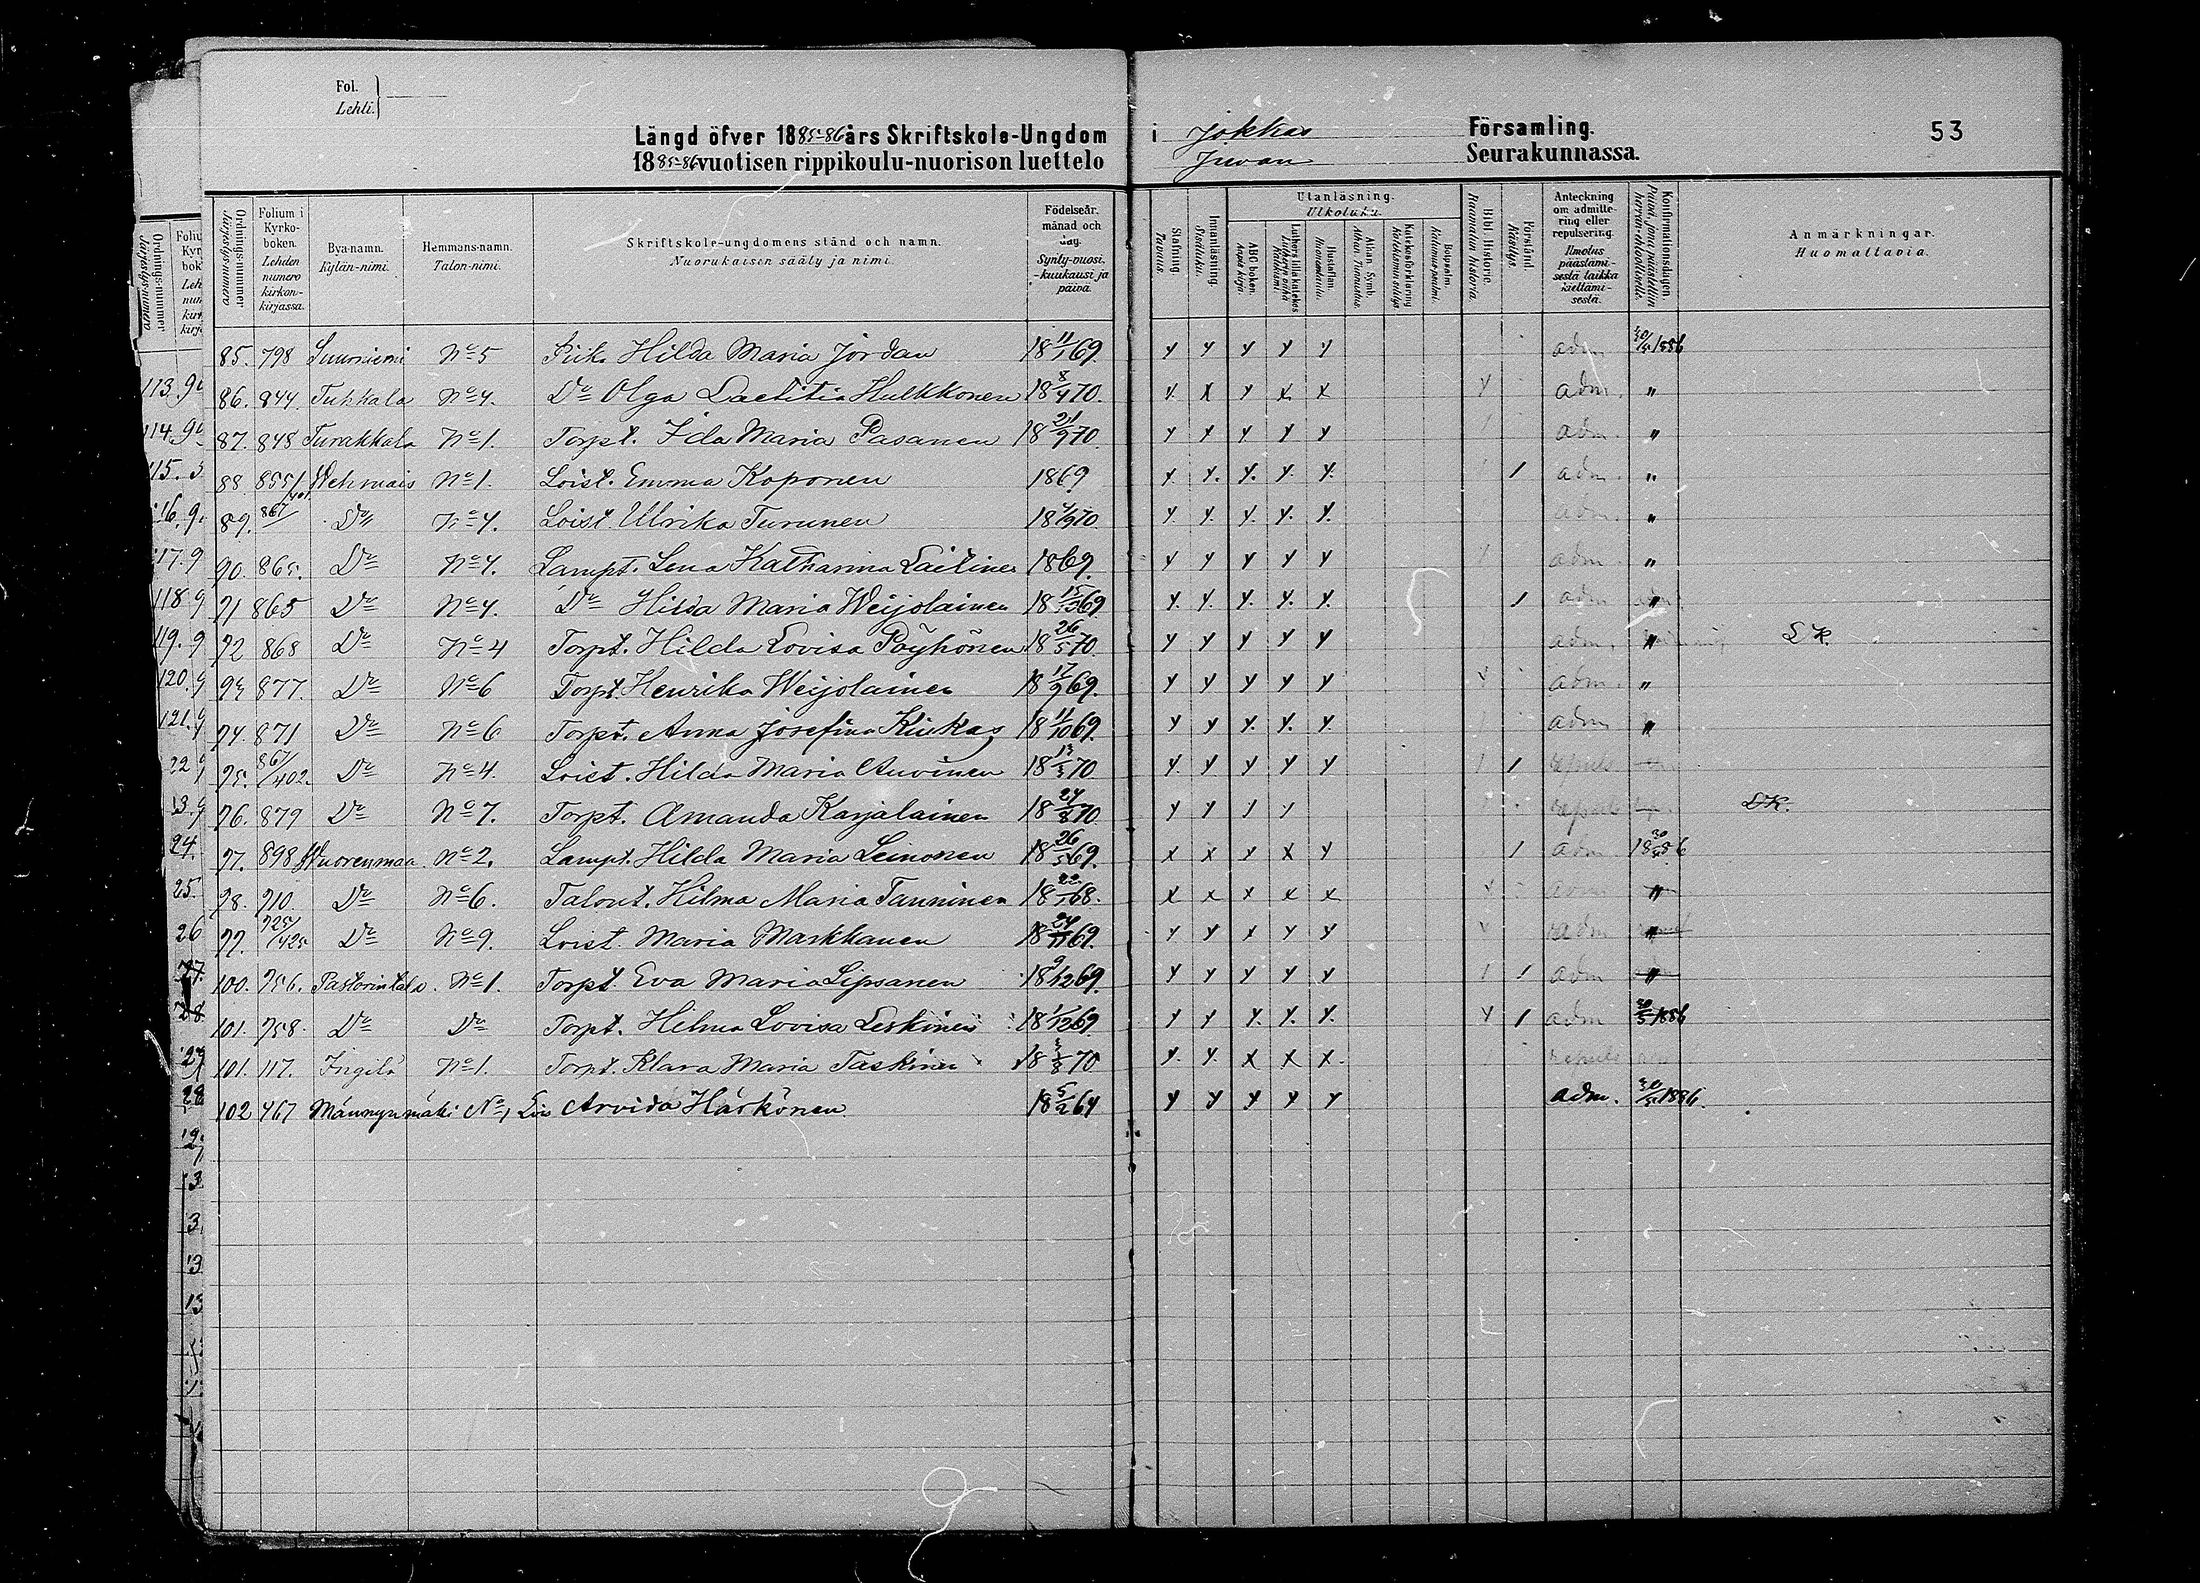 Fol.
Lehti.
Längd öfver 1885-86 års Skriftskole-Ungdom i Jokkas Församling. 53
1885-86 vuotisen rippikoulu-nuorison luettelo Juvan Seurakunnassa.
Ordnings-nummer Järjestys-numero
Folium i Kyrko-boken. Lehden numero kirkon-kirjassa.
Bya-namn. Kylän-nimi.
Hemmans-namn. Talon-nimi.
Skriftskole-ungdomens stånd och namn. Nuorukaisen sääty ja nimi.
Födelseår. månad och dag. Synty-vuosi. -kuukausi ja päivä.
Stafning. Tavaus.
Innanläsning. Sisäluku.
Utanläsning. Ulkoluku.
ABC boken. Aapis kirja
Luthers lilla katekes Lutherin vähä katkismus
Hustaflan. Huoneentaulu.
Athan. Symb. Athan. Tunnustus.
Katekesförklaring Katekismus selitys
Botpsalm. Katumus-psalmi.
Bibl. Historie. Raamatun historia.
Förstånd. Käsitys.
Anteckning om admitte-ring eller repulsering. Ilmoitus päästämi-sestä taikka kieltämi-sestä.
Konfirmationsdagen. Päivä, jona päästettiin herran-ehtoolliselle.
Anmärkningar. Huomattavia.
85. 798 Suurniemi No 5 Pik. Hilda Maria Jordan 18 11/1 69. y y y y y adm 30/5 1886
86. 844. Tukkala No 4. Do Olga Laetitia Hulkkonen 18 8/4 70. y x y x x y adm. "
87. 848 Turakkala No 1. Torpt. Ida Maria Pasanen 18 21/9 70. y y y y y adm. "
88. 855/401 Wehmais No 1. Loist. Emma Koponen 1869 y y. y. y. y. 1 adm. "
89. 867/ Do No 4. Loist Ulrika Turunen 18 4/9 70. y y. y. y. y. adm. "
90. 865. Do No 4. Lampt. Lena Katharina Laitinen 1869. y y y y y adm. "
91 865 Do No 4. Do Hilda Maria Weijolainen 18 15/5 69 y. y. y. y. y. 1 adm "
92 868 Do No 4 Torpt. Hilda Lovisa Pöyhönen 18 26/5 70. y y y y y adm. " LK
93 877. Do No 6 Torpt Henrika Weijolainen 18 17/9 69. y y y y y adm. "
94. 871 Do No 6 Torpt. Anna Josefina Kiukas 18 11/10 69. y y y. y. y adm "
95. 867/402. Do No 4. Loist. Hilda Maria Auvinen 18 13/3 70. y. y y y y 1 repuls
96. 879 Do No 7. Torpt. Amanda Karjalainen 18 24/8 70. y y y y repuls LK.
97. 898 Wuorenmaa No 2. Lampt. Hilda Maria Leinonen 18 26/5 69. x x y x y 1 adm 18 30/5 86
98. 910. Do No 6. Talont. Hilma Maria Tanninen 18 22/1 68. x x x x x adm "
99. 925/425 Do No 9. Loist. Maria Markkanen 18 24/11 69. y y x y y adm "
100. 956. Pastorintala. No 1. Torpt. Eva Maria Lipsanen 18 9/12 69. y y y y y 1 adm "
101. 958. Do Do Torpt. Hilma Lovisa Leskinen 18 1/12 69. y y y. y. y. y 1 adm 30/5 1886
101. 117. Ingilä No 1. Torpt. Klara Maria Taskinen 18 3/8 70 y. y. x x x. repuls
102 467 Männynmäki No 1, Lois Arvida Härkönen 18 5/2 64 y y y y y adm. 30/5 1886.